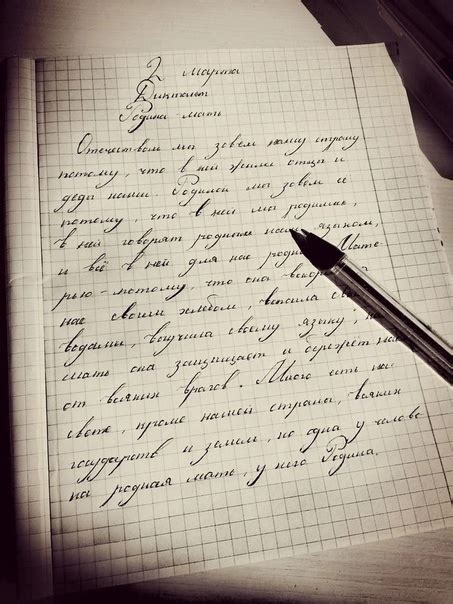 2 марта
Диктант
Родина-мать
Отечеством мы зовем нашу страну
потому, что в ней жили отцы и
деды наши. Родиной мы зовем ее
потому, что в ней мы родились,
в ней говорят родным нам языком,
и всё в ней для нас родное. Мате-
рью - потому, что она вскормила
нас своим хлебом, вспоила
водами, выучила своему языку;
мать она защищает и бережет нас
от всяких врагов. Много есть на
свете, кроме нашей страны, всяких
государств и земель, но одна у челове
на родная мать, у него Родина.